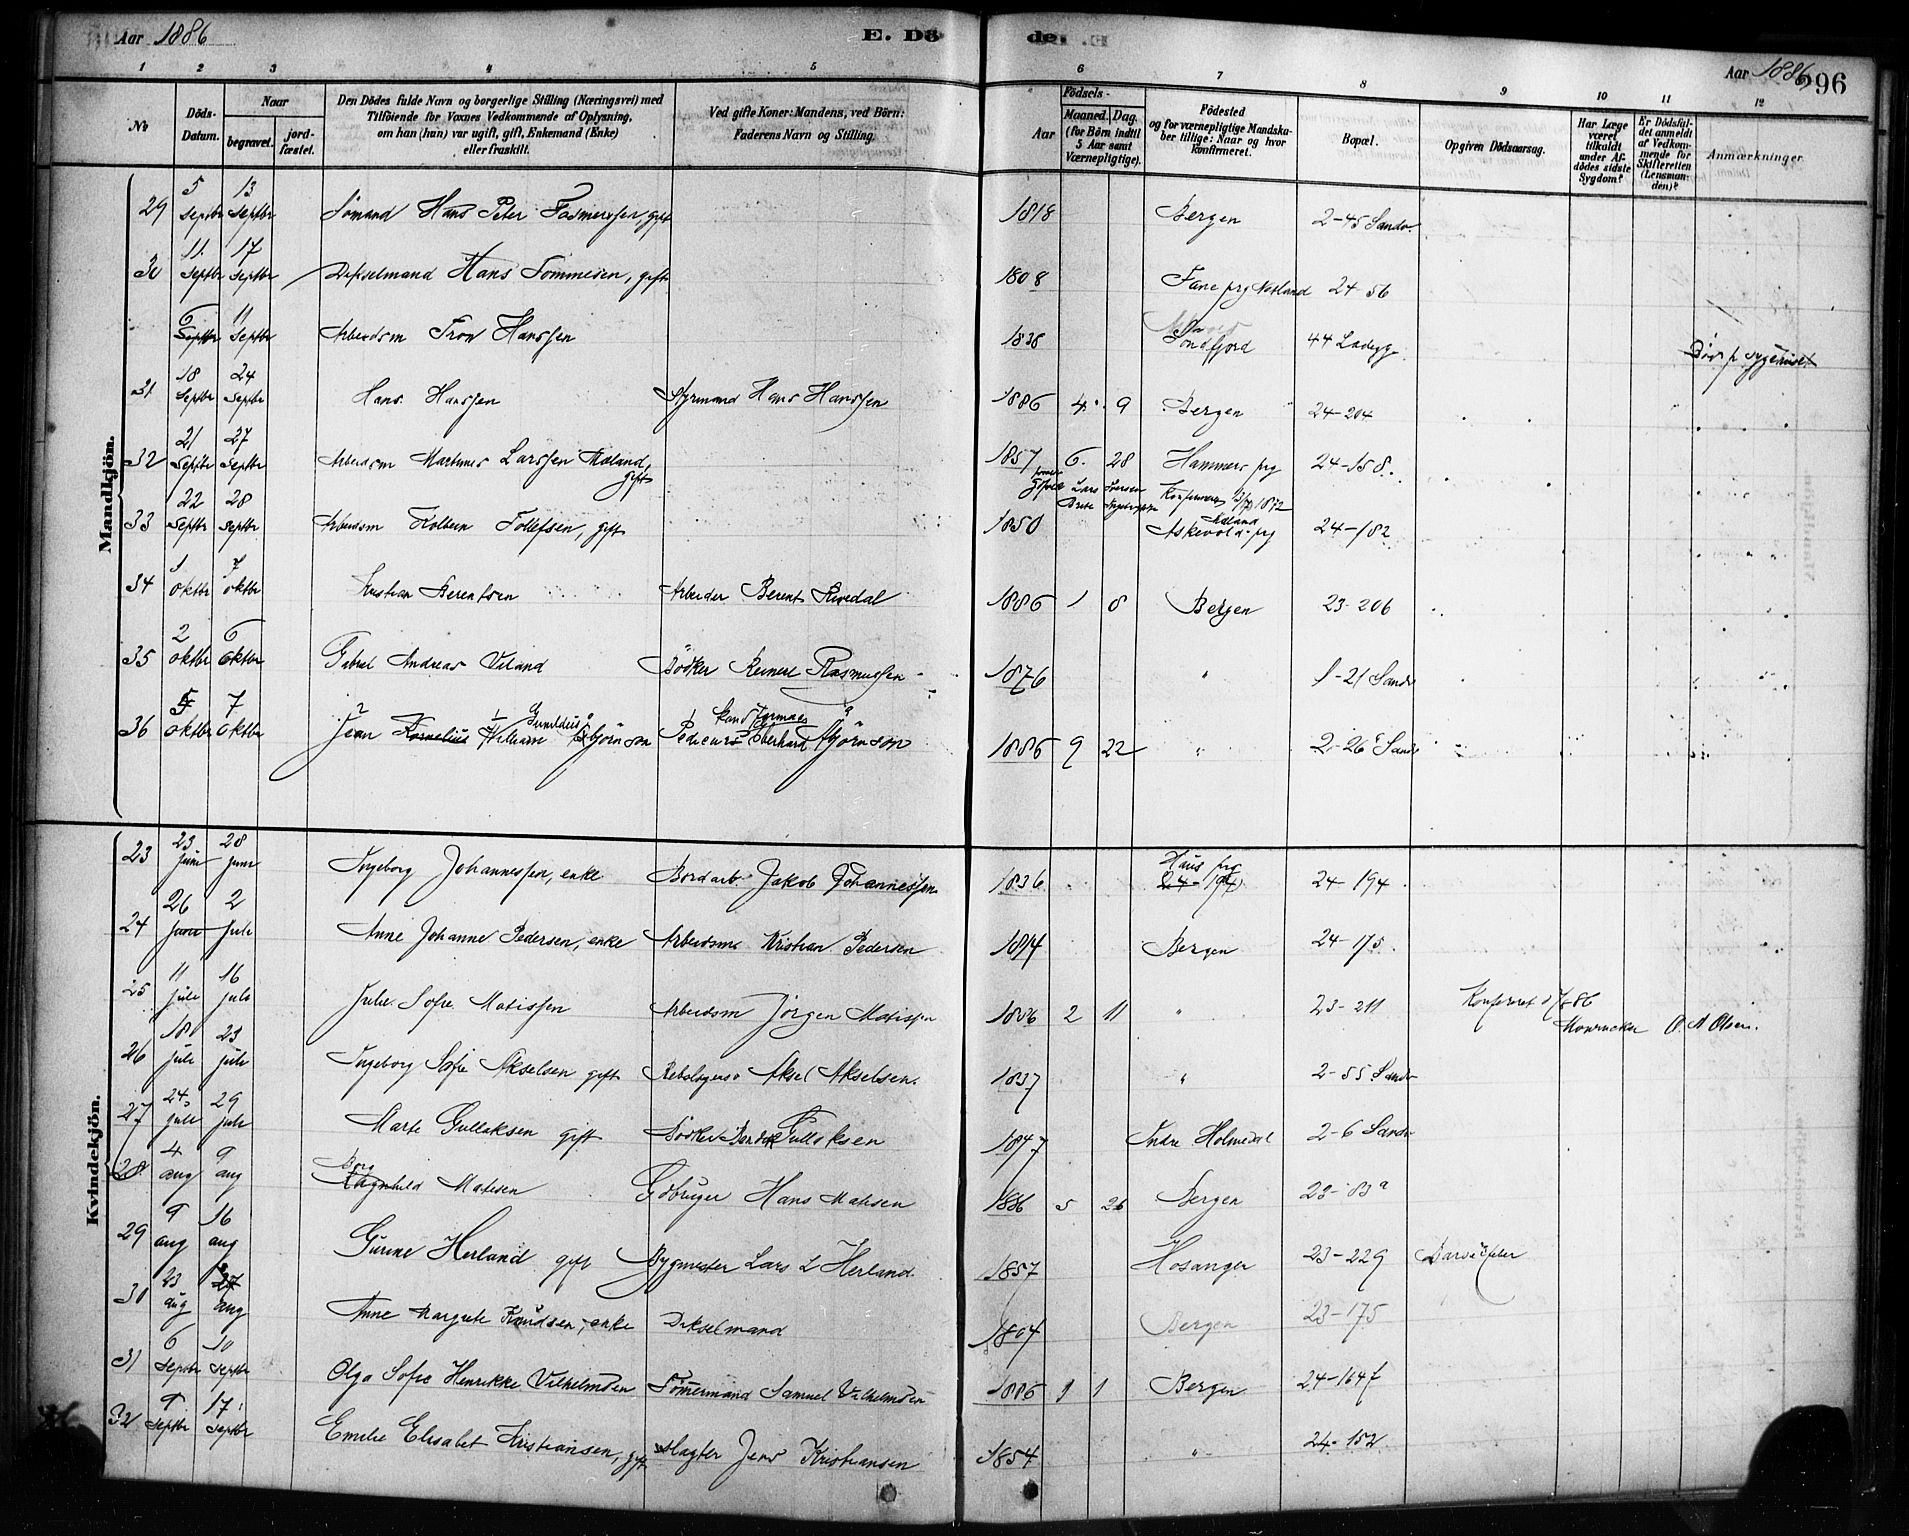 Aar 1886 E. Dö de. Aar 1886 296
1 2 3 4 5 6 7 8 9 10 11 12
No Döds-Datum. Naar begravet. jord-fæstet. Den Dödes fulde Navn og borgerlige Stilling (Næringsvei) med Tilföiende for Voxnes Vedkommende af Oplysning, om han (hun) var ugift, gift, Enkemand (Enke) eller fraskilt. Ved gifte Koner: Mandens, ved Börn: Faderens Navn og Stilling. Aar Födsels- Maaned. Dag. (for Börn indtil 5 Aar samt Værnepligtige). Födested og for værnepligtige Mandskaber tillige: Naar og hvor konfirmeret. Bopæl. Opgiven Dödsaarsag. Har Læge været tilkaldt under Afdödes sidste Sygdom? Er Dödsfaldet anmeldt af Vedkommende for Skifteretten (Lensmanden)? Anmærkninger.
Mandkjön.
29 5 Septbr 13 Septbr Sömand Hans Peter gift 1818 Bergen 2-45 Sandv.
30 11 Septbr 17 Septbr Hans Tommesen, gift 1808 Fane prg 24-56
6 Septbr 11 Septbr Arbeidsm Hanssen 1838 Söndfjord 44 Ladegg.
31 18 Septbr 24 Septbr Hans Hanssen Styrmand Hans Hanssen 1886 4 9 Bergen 24-204
32 21 Septbr 27 Septbr Arbeidsm Martines Larssen gift 1857 6 28 Hammers prg 24-158.
1872
33 22 Septbr 28 Septbr Arbeidsm Tollefsen, gift 1850 Askevold prg 24-182
34 1 Oktbr 7 Oktbr Kristian Berentsen Arbeider Berent 1886 1 8 Bergen 23-206
35 2 Oktbr 6 Oktbr Gabriel Andreas Bödker Reinert Rasmussen 1876 " 1-21 Sandv
36 5 Oktbr 7 Oktbr Jean Kornelius William Björnson Eberhard Björnson 1885 9 22 " 2-26 Sandv
Kvindekjön.
23 23 Juni 28 Juni Ingeborg Johannessen, enke Bordarb. Jakob Johannessen 1836 Haus prg 24-194 24-194
24 26 Juni 2 Juli Anne Johanne Pedersen, enke Arbeidsm Kristian Pedersen 1814 Bergen 24-175.
25 11 Juli 16 Juli Julie Sofie Matissen Arbeidsm Jörgen Matissen 1886 2 11 " 23-211 Olsen.
26 18 Juli 23 Juli Ingeborg Sofie Akselsen gift Aksel Akselsen. 1837 " 2-55 Sandv
27 24 Juli 29 Juli Marte Gullaksen gift Bödker Gullaksen 1847 Indre Holmedal 2-6 Sandv
28 4 aug 9 aug Ragnhild Matisen Gdbruger Hans Matisen 1886 5 26 Bergen 23-83a
29 9 aug 16 aug Gurine Herland gift Bygmester Lars L Herland. 1857 Hosanger 23-229 Barselfeber
30 23 aug 27 aug Anne Margrete Knudsen, enke 1804 Bergen 23-175
31 6 Septbr 10 Septbr Olga Sofie Henrikke Vilhelmsen Tömmermand Samuel Vilhelmsen 1885 9 1 Bergen 24-164f
32 9 Septbr 17 Septbr Emilie Elisabet Kristiansen, gift Slagter Jens Kristiansen 1854 " 24-152